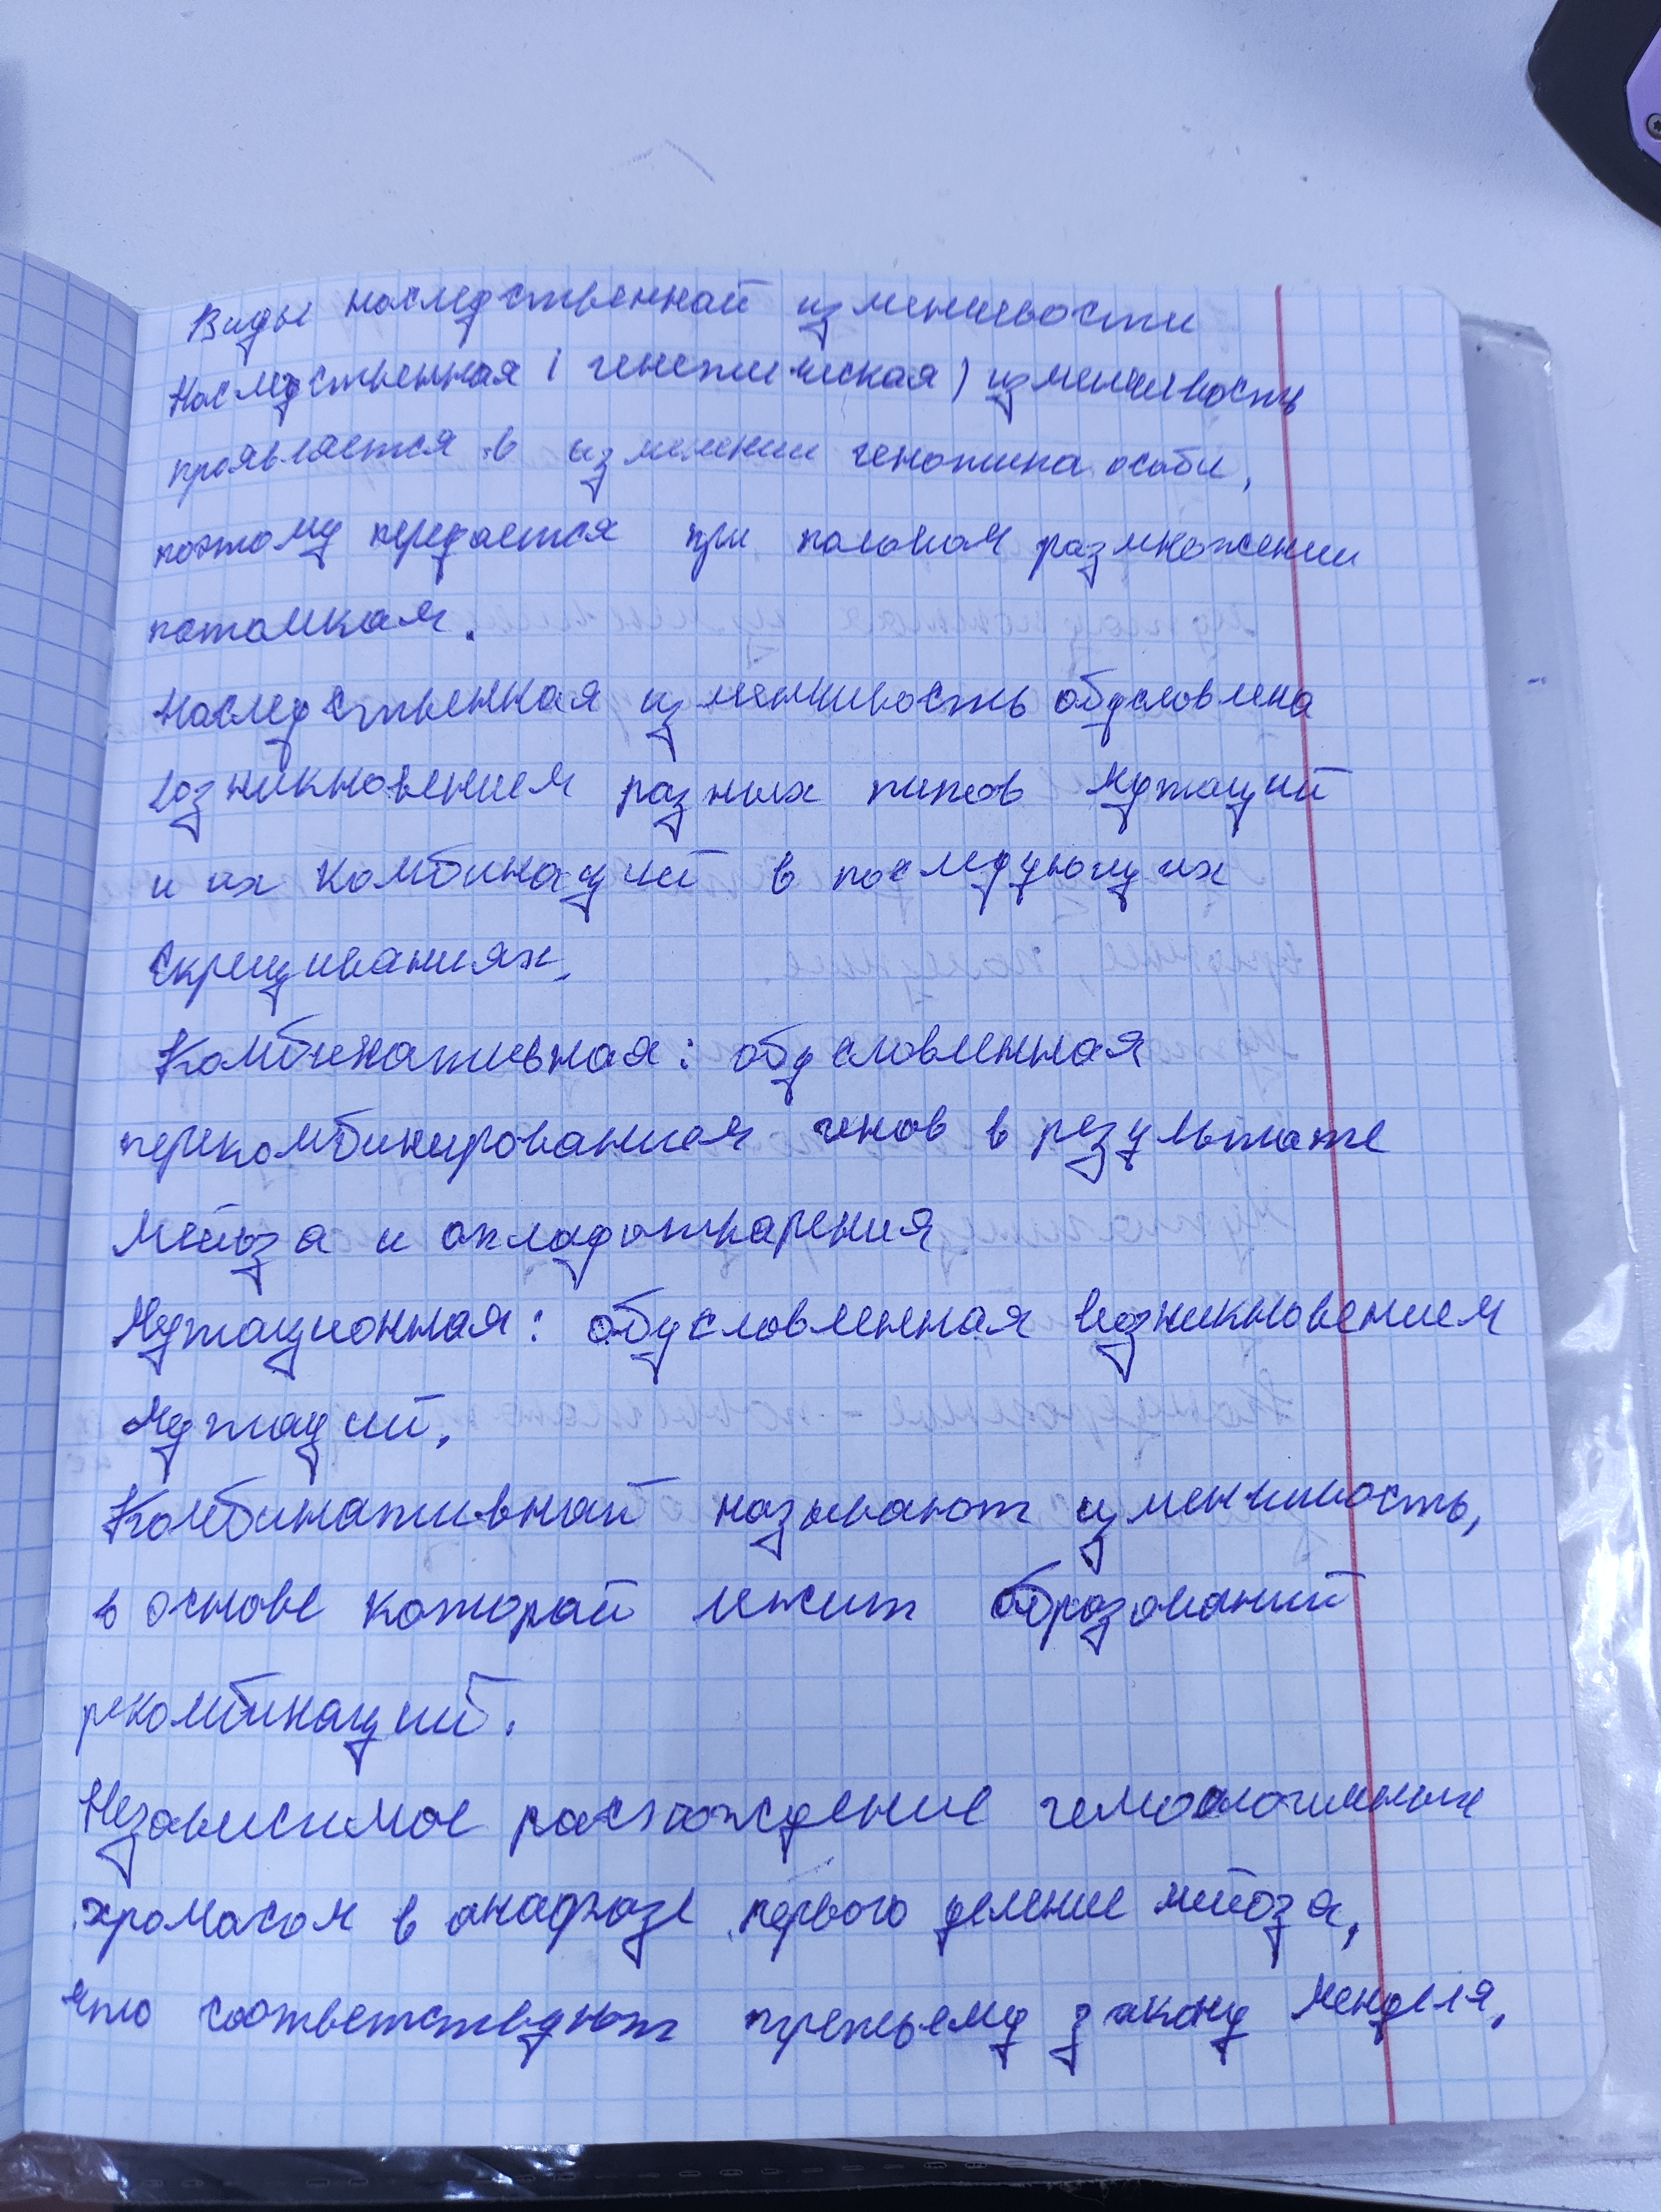 Виды наследственной изменчивости
Наследственная (генетическая) изменчивость
проявляется в изменении генотипа особи,
поэтому передается при половом размножении
потомкам.
Наследственная изменчивость обусловлена
возникновением разных типов мутаций
и их комбинаций в последующих
скрещиваниях.
Комбинативная: обусловленная
перекомбинированием генов в результате
мейоза и оплодотварения
Мутационная: обусловленная возникновением
мутаций.
Комбинативной называют изменчивость,
в основе которой лежит образований
рекомбинаций.
Независимое расхождение гемоологичных
хромасом в анафазе первого деление мейоза,
что соответствуют третьему закону Менделя,